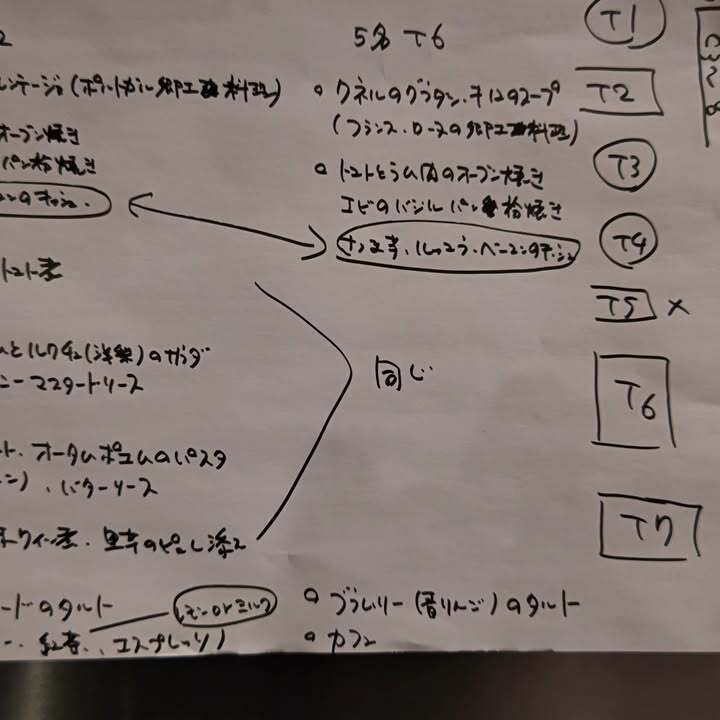 2
5名 T6
ンテージョ(ポルトガル郷土料理)
オーブン焼き
パン粉焼き
トマト煮
(洋梨)のサラダ
ニーマスタードソース
ト、オータムポエムのパスタ
ン)、バターソース
里芋のピュレ添え
ードのタルト
レモン or ミルク
紅茶、エスプレッソ)
クネルのグラタン、キノコのスープ
(フランス、ローヌの郷土料理)
トマトとラム肉のオーブン焼き
エビのバジルパン粉焼き
さつま芋、ベーコンのキッシュ
同じ
(青りんご)のタルト
カフェ
T1
T2
T3
T4
T5 ×
T6
T7